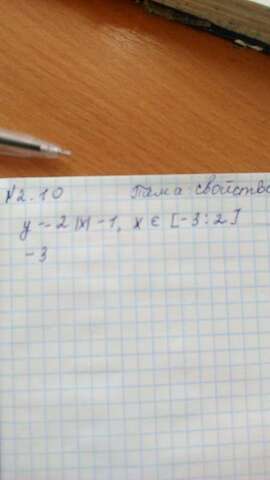 №2.10 Тема: свойство
y - 2|x| - 1, x ∈ [-3:2]
-3